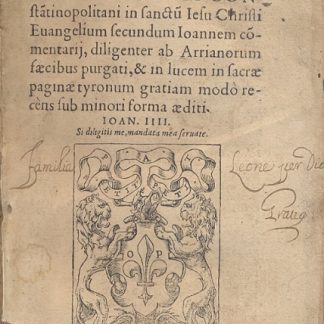 stãtinopolitani in sanctũ Iesu Christi
Euangelium secundum Ioannem cõ-
mentarij, diligenter ab Arrianorum
fæcibus purgati, & in lucem in sacræ
paginæ tyronum gratiam modò re-
cens sub minori forma æditi.
IOAN. IIII.
Si diligitis me, mandata mea seruate.
Familia
Leone
O P